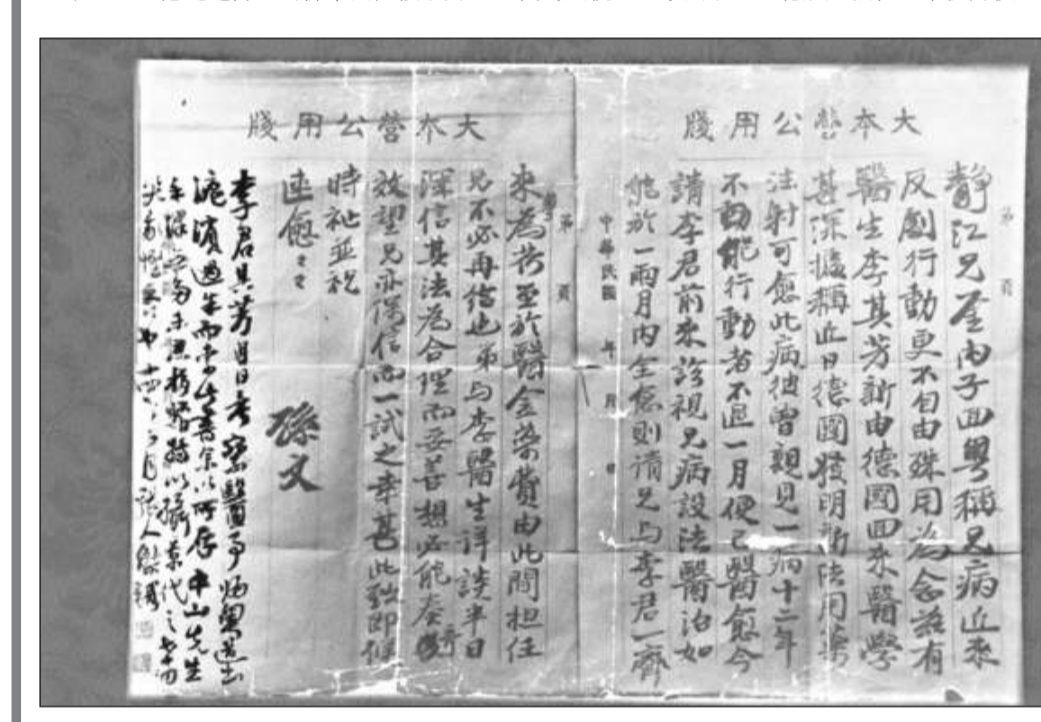 大本營公用牋
靜江兄鑒內子回粵稱兄病近來
反劇行動更不自由殊用為念茲有
醫生李其芳新由德國回來醫學
甚深據稱近日德國發明新法用藥
注射可愈此病彼曾親見一病十二年
不動能行動者不過一月便已醫愈今
請李君前來診視兄病設法醫治如
能於一兩月內全愈則請兄与李君一齊
中華民國 年 月 日
第 頁
大本營公用牋
第 頁
來為荷至於醫金藥費由此間担任
兄不必再給也弟与李醫生詳談半日
深信其法為合理而妥善想必能奏奇
效望兄亦深信而一試之幸甚此致即候
時祉並祝
速愈
孫文
李君其芳自日考察醫事
滬濱過年而出此書余以所存中山先生
手
張人傑識